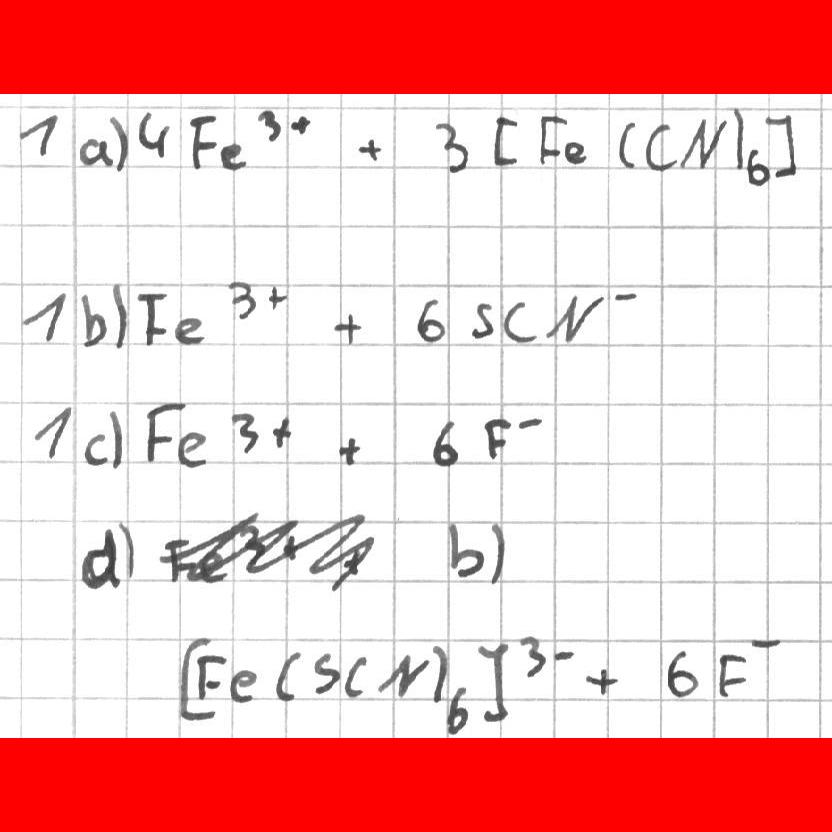 1 a) 4 Fe³⁺ + 3 [Fe(CN)₆]
1 b) Fe³⁺ + 6 SCN⁻
1 c) Fe³⁺ + 6 F⁻
d) b)
[Fe(SCN)₆]³⁻ + 6 F⁻